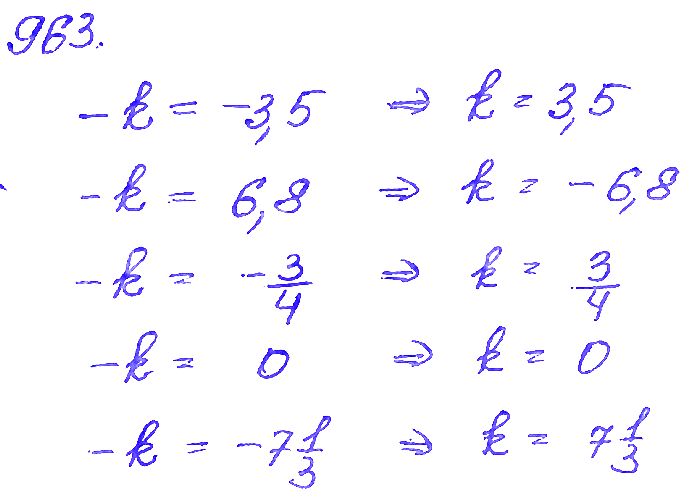 963.
-k = -3,5 ⇒ k = 3,5
-k = 6,8 ⇒ k = -6,8
-k = -3/4 ⇒ k = 3/4
-k = 0 ⇒ k = 0
-k = -7 1/3 ⇒ k = 7 1/3